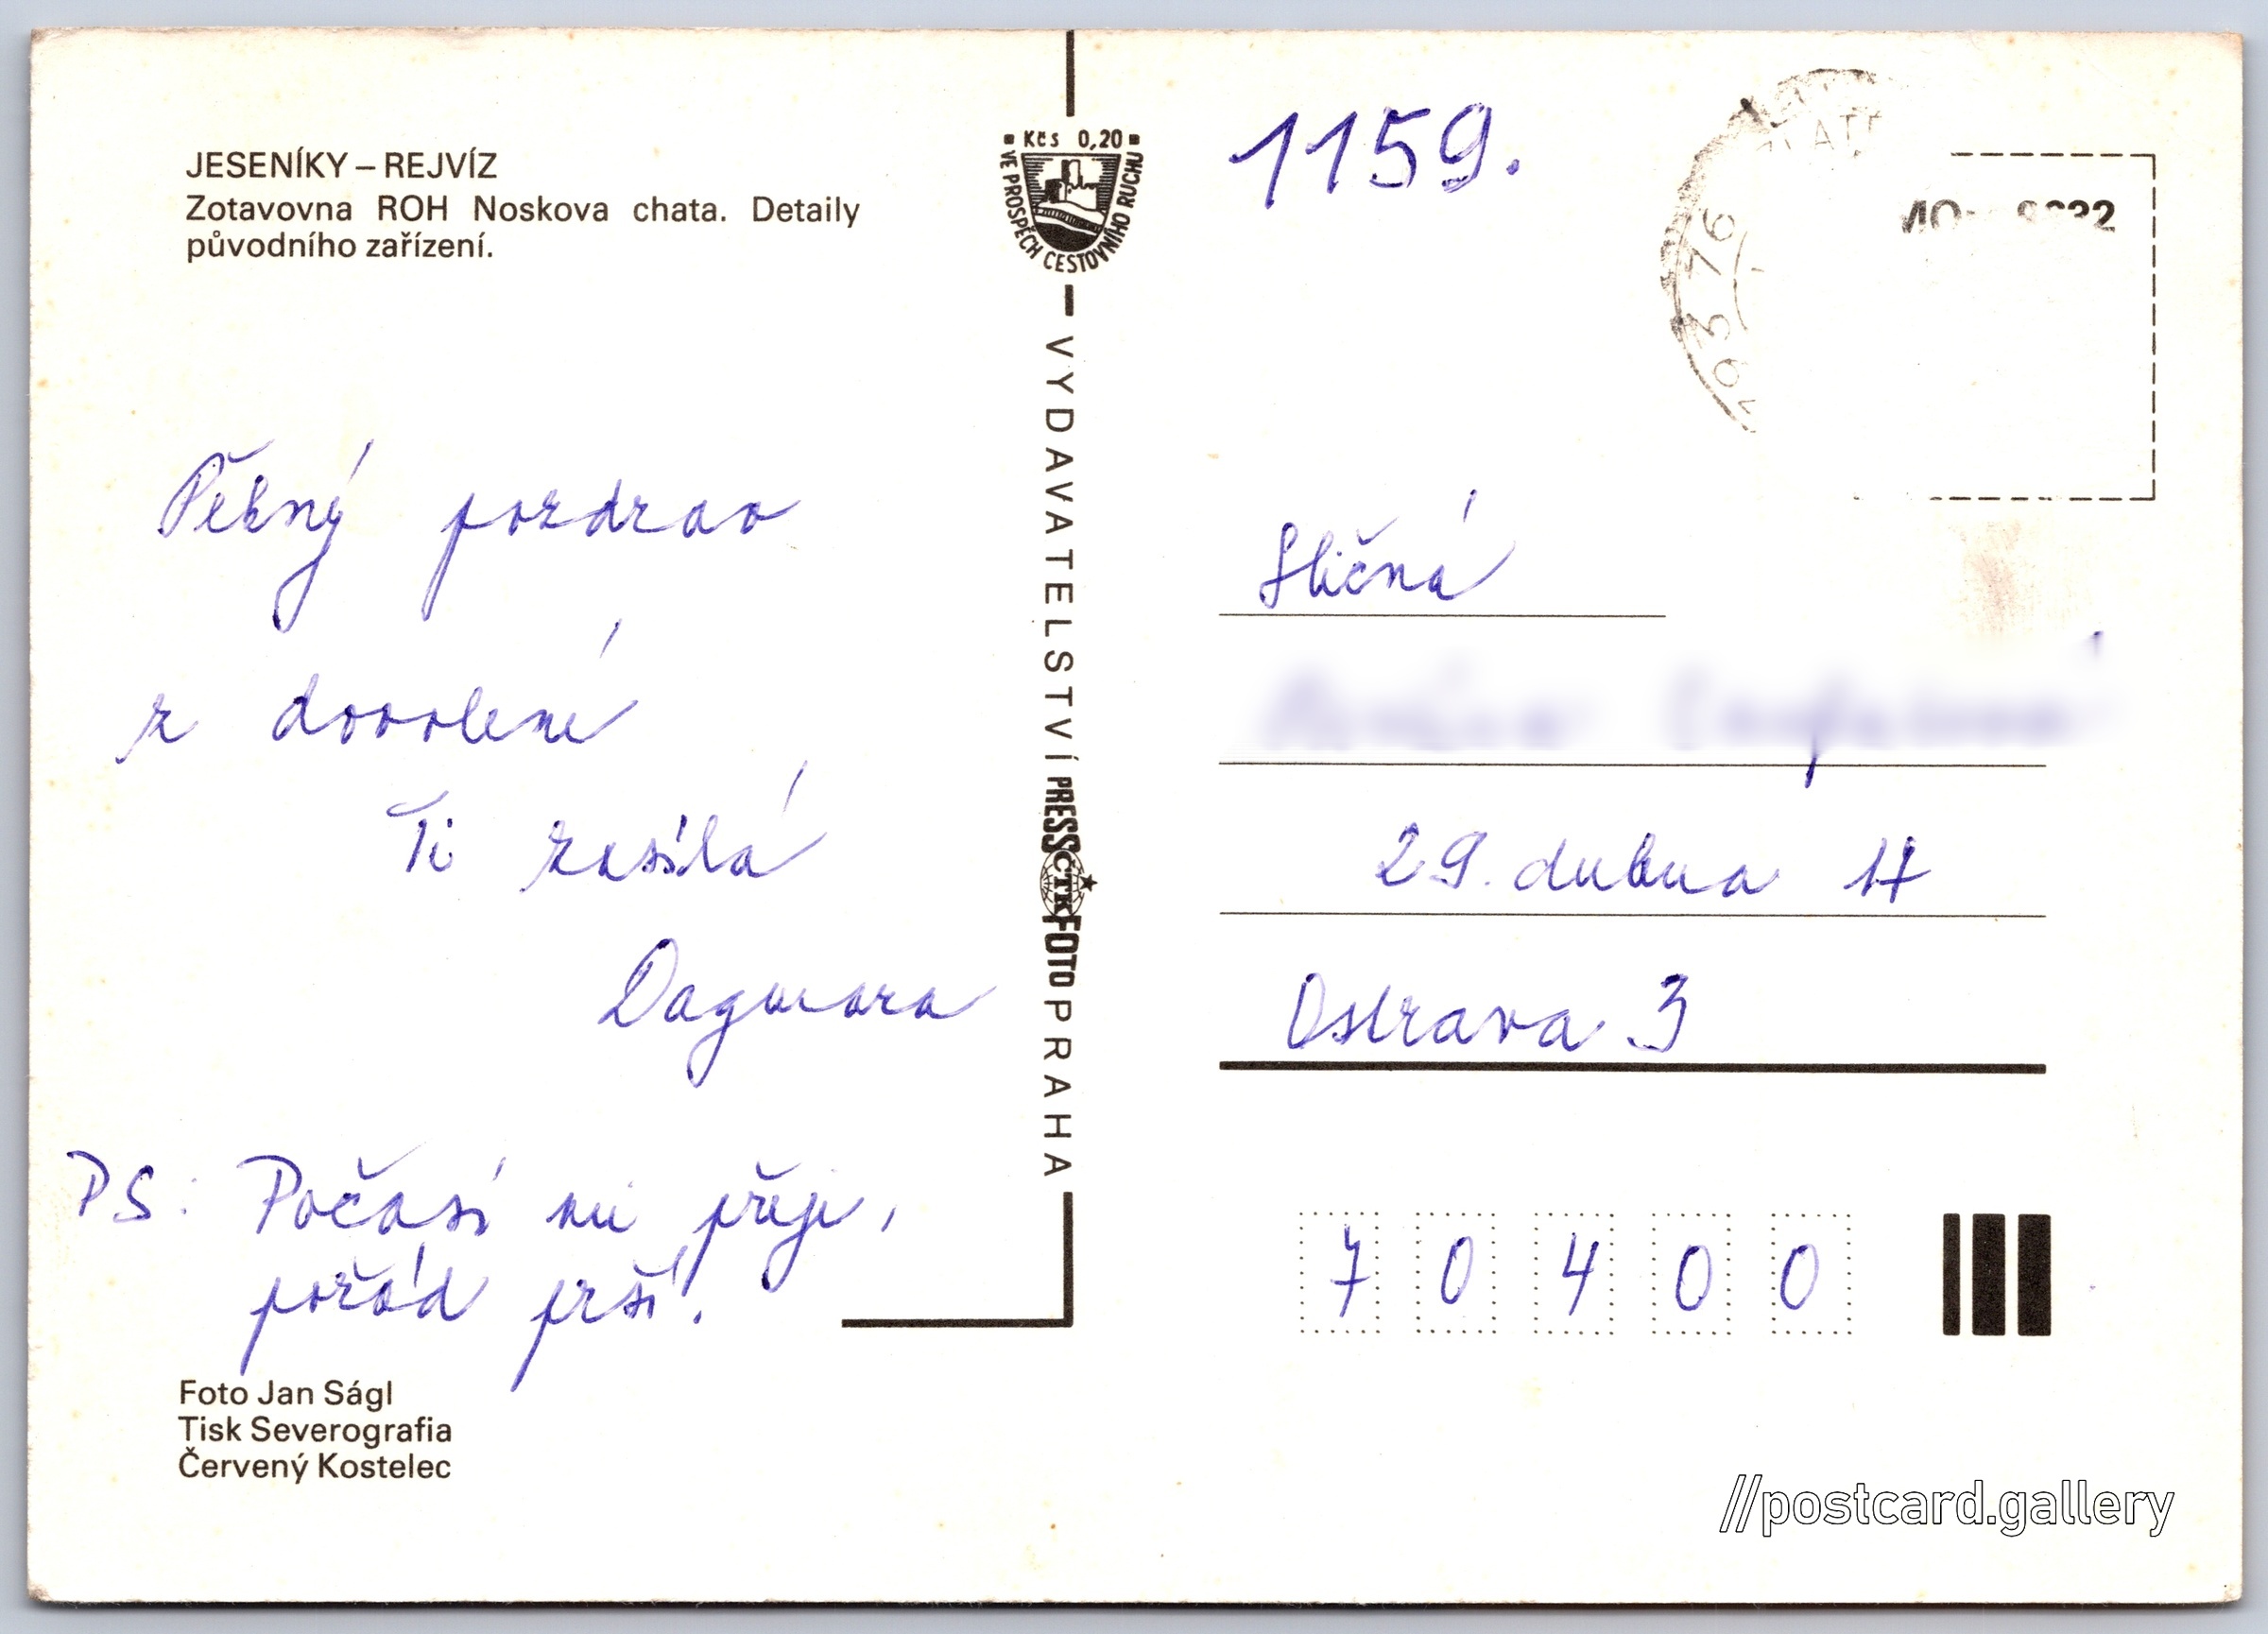 JESENÍKY – REJVÍZ
Zotavovna ROH Noskova chata. Detaily
původního zařízení.
Pěkný pozdrav
z dovolené
Ti zasílá
Dagmara
PS: Počasí mi přeje,
pořád prší!
Foto Jan Ságl
Tisk Severografia
Červený Kostelec
Kčs 0,20
VE PROSPĚCH CESTOVNÍHO RUCHU
VYDAVATELSTVÍ PRESSFOTO PRAHA
ČTK
1159.
76
Sličná
29. dubna 14
Ostrava 3
70400
//postcard.gallery